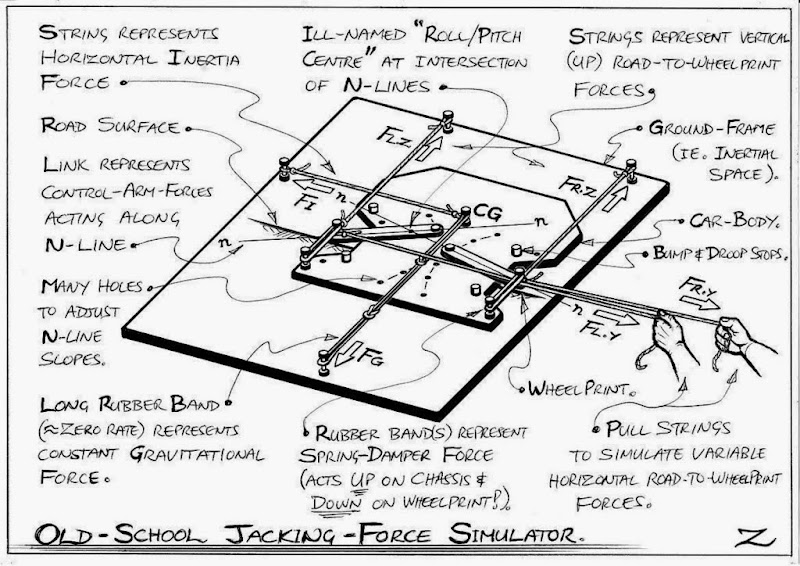 String represents
Horizontal Inertia
Force
Ill-named "Roll/Pitch
Centre" at intersection
of N-lines
Strings represent vertical
(up) road-to-wheelprint
forces.
Road Surface
Ground-Frame
(ie. Inertial
Space).
Link represents
control-arm-forces
acting along
N-line
Car-Body.
Bump & Droop Stops.
Many holes
to adjust
N-line
slopes.
FL.Z
FR.Z
FI
n
CG
n
n
n
FL.Y
FR.Y
FG
WheelPrint.
Long Rubber Band
(≈zero rate) represents
constant Gravitational
Force.
Rubber band(s) represent
Spring-Damper Force
(acts up on chassis &
down on wheelprint!).
Pull Strings
to simulate variable
horizontal road-to-wheelprint
forces.
Old-School Jacking-Force Simulator.
Z